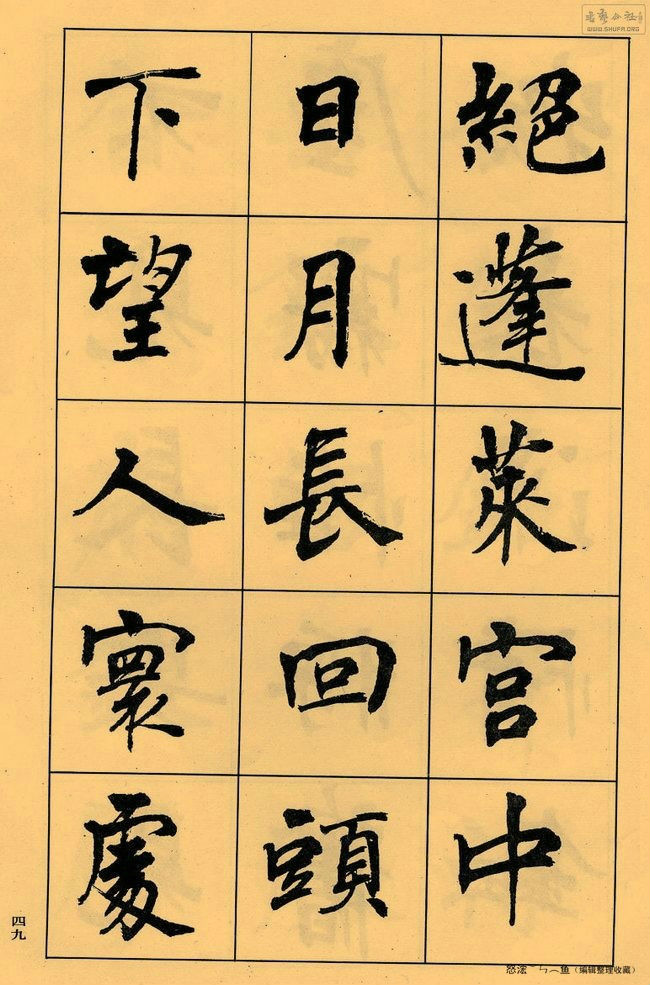 絕蓬萊宮中
日月長回頭
下望人寰處
四九
書藝公社
WWW.SHUFA.ORG
(编辑整理收藏)